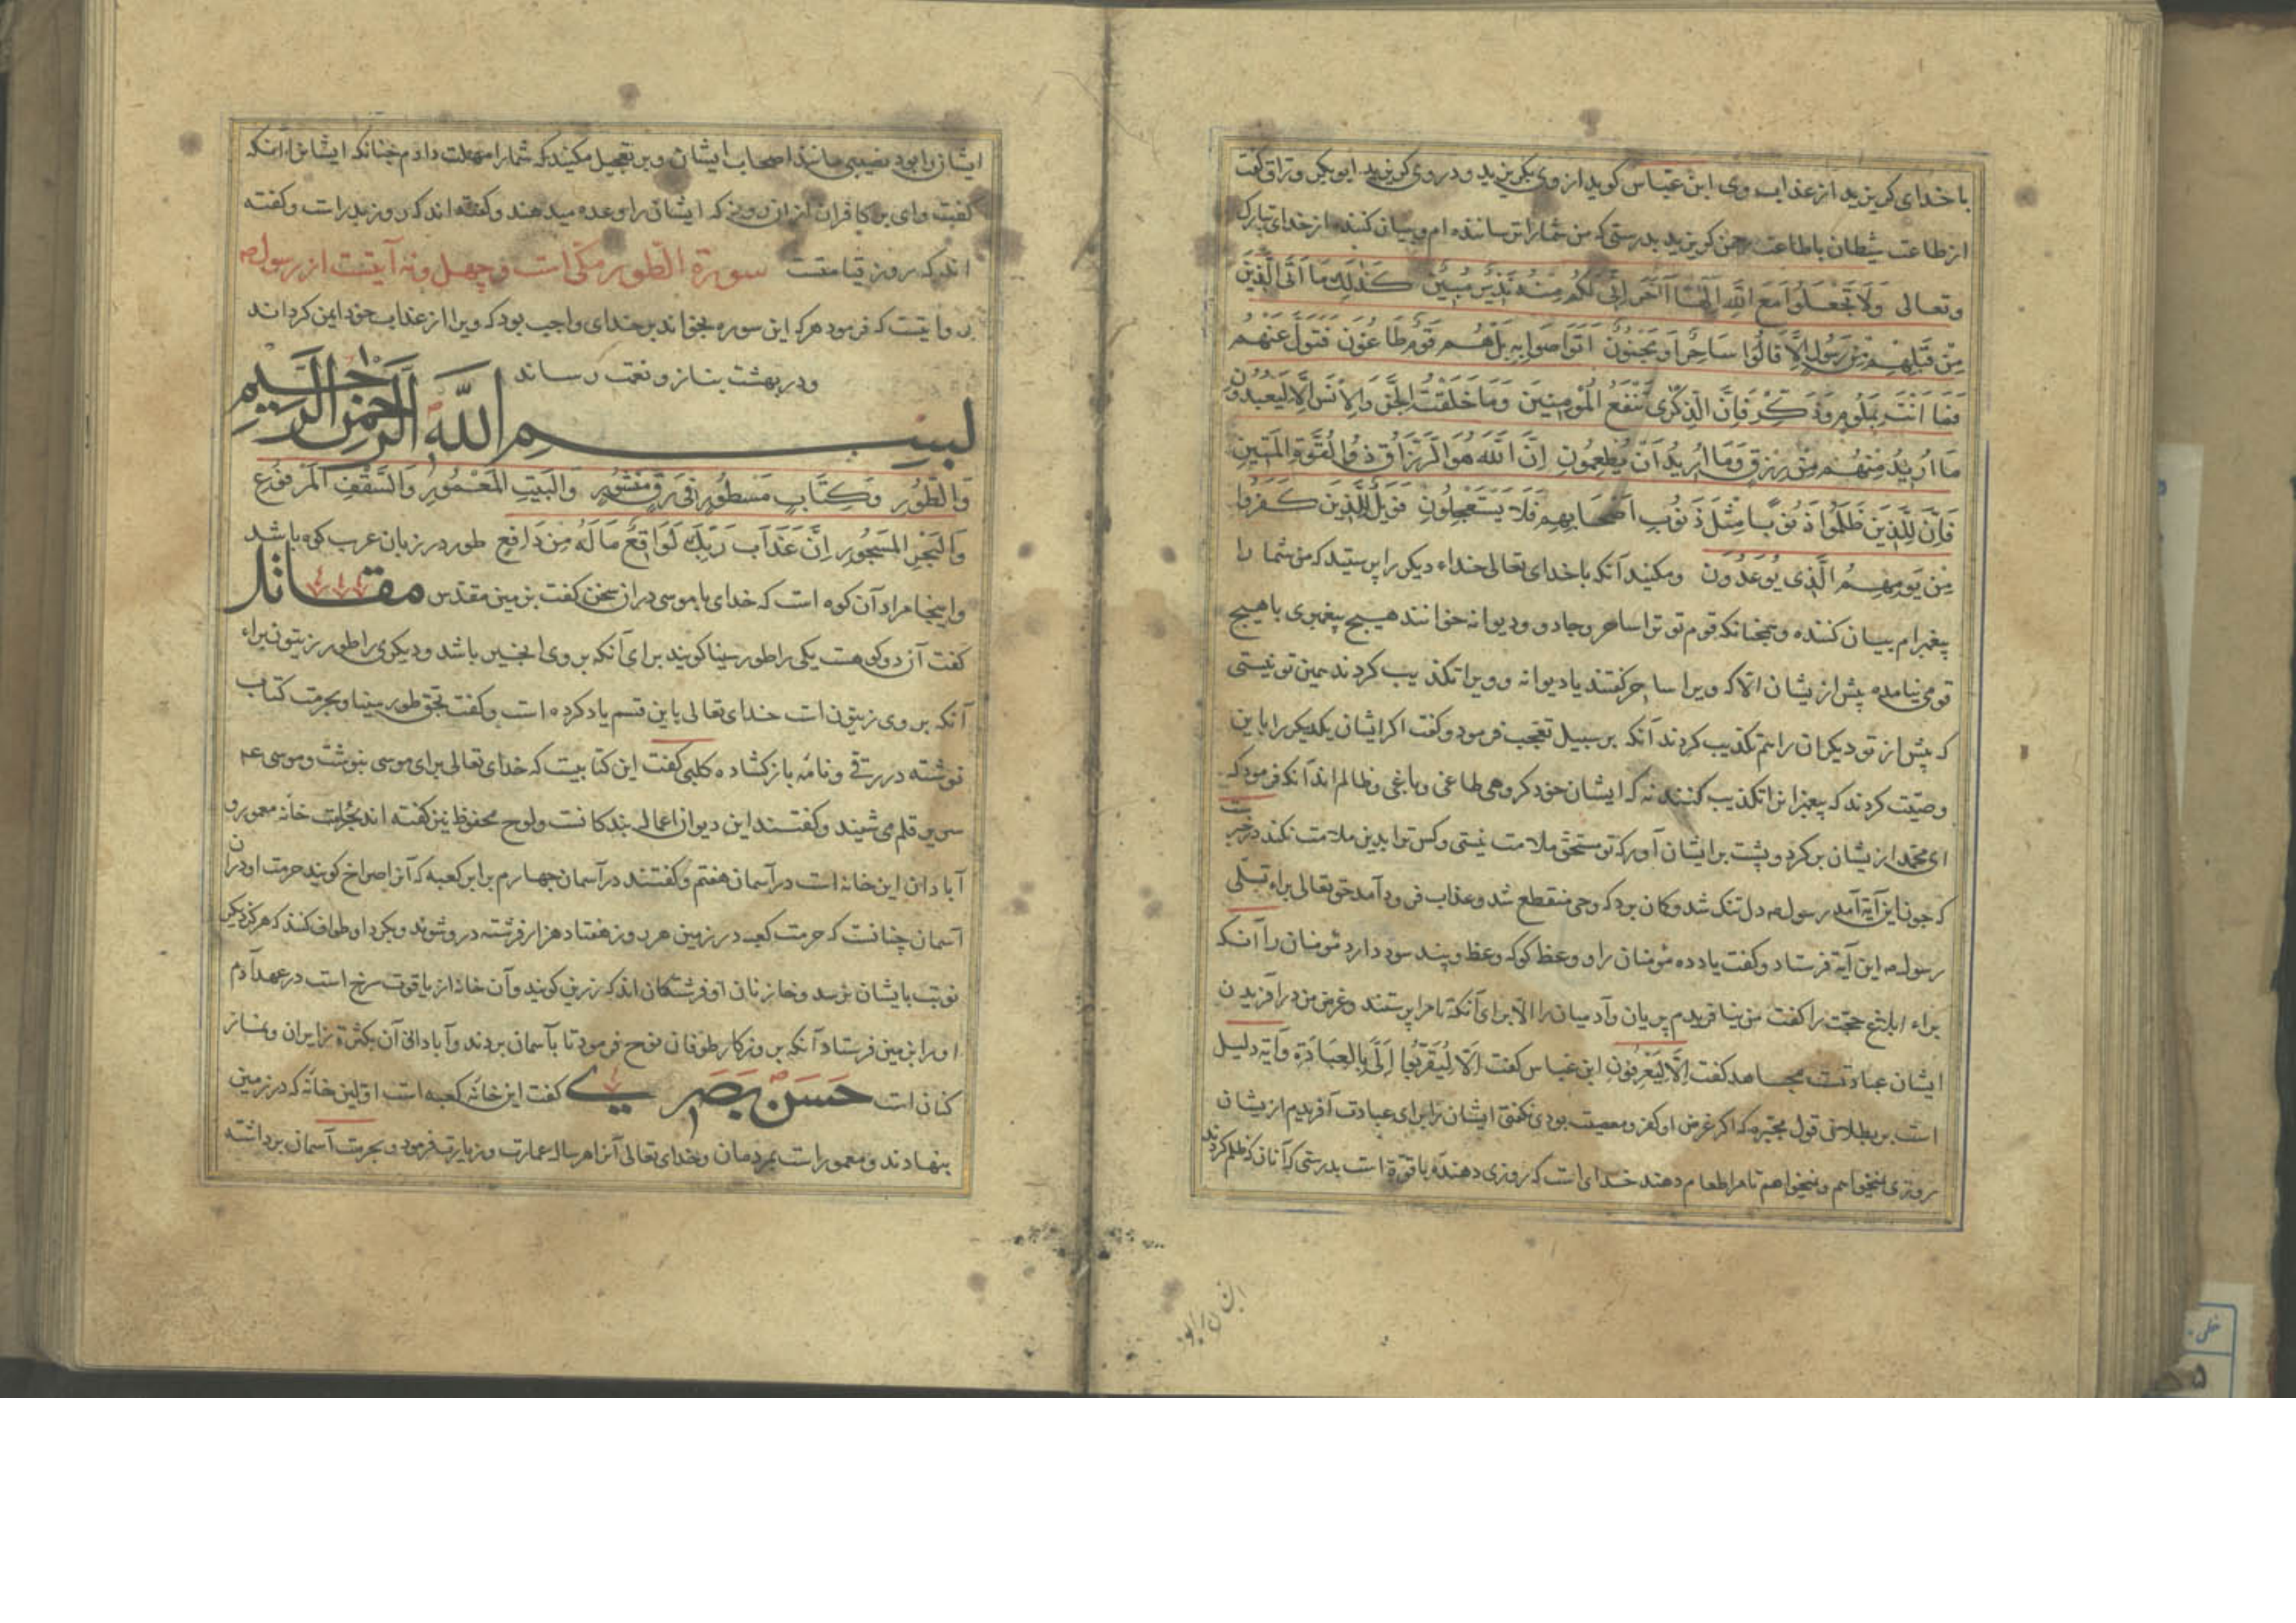 با خدای کریزید از عذاب وی ابن عباس کوید از وی بکریزید و در وی کریزید ابوبکر وراق کفت
از طاعت شیطان با طاعت رحمن کریزید بدرستی که من شما را ترساننده ام و بیان کننده از خدای تبارک
وتعالی وَلَا تَجْعَلُوا مَعَ اللَّهِ اِلَهًا آخَرَ اِنِّی لَکُم مِنْهُ نَذِیرٌ مُبِینٌ کَذَلِکَ مَا اَتَی الَّذِینَ
مِنْ قَبْلِهِمْ مِنْ رَسُولٍ اِلَّا قَالُوا سَاحِرٌ اَوْ مَجْنُونٌ اَتَوَاصَوْا بِهِ بَلْ هُمْ قَوْمٌ طَاغُونَ فَتَوَلَّ عَنْهُمْ
فَمَا اَنْتَ بِمَلُومٍ وَذَکِّرْ فَاِنَّ الذِّکْرَی تَنْفَعُ الْمُؤْمِنِینَ وَمَا خَلَقْتُ الْجِنَّ وَالْاِنْسَ اِلَّا لِیَعْبُدُونِ
مَا اُرِیدُ مِنْهُمْ مِنْ رِزْقٍ وَمَا اُرِیدُ اَنْ یُطْعِمُونِ اِنَّ اللَّهَ هُوَ الرَّزَّاقُ ذُو الْقُوَّةِ الْمَتِینُ
فَاِنَّ لِلَّذِینَ ظَلَمُوا ذَنُوبًا مِثْلَ ذَنُوبِ اَصْحَابِهِمْ فَلَا یَسْتَعْجِلُونِ فَوَیْلٌ لِلَّذِینَ کَفَرُوا
مِنْ یَوْمِهِمُ الَّذِی یُوعَدُونَ ومکنید آنکه با خدای تعالی خداء دیکر را پرستید که من شما را
پیغمبرام بیان کننده وهمچنانکه قوم تو ترا ساحر وجادو ودیوانه خوانند هیچ پیغمبری با هیچ
قومی نیامده پیش از یشان الا که ویرا ساحر کفتند یا دیوانه وویرا تکذیب کردند همین تو نیستی
که پیش از تو دیکران را هم تکذیب کردند آنکه بر سبیل تعجب فرمود وکفت اکر ایشان یکدیکر را باین
وصیت کردند که پیغمبرانرا تکذیب کنند نه که ایشان خود کروهی طاغی وباغی وظالم اند آنکه فرمود که
ای محمد از یشان بر کرد و پشت بر ایشان آور که تو مستحق ملامت نیستی وکس ترا بدین ملامت نکند در خبر
که چون این آیه آمد رسول دل تنک شد وکان برد که وحی منقطع شد وعذاب فرود آمد حق تعالی براء تسلی
رسول این آیة فرستاد وکفت یاد ده مؤمنان را و وعظ کو که وعظ وپند سود دارد مؤمنان را آنکه
براء ابلاغ حجت را کفت من نیافریدم پریان وآدمیان را الا برای آنکه تا مرا پرستند وغرض من در آفریدن
ایشان عبادتست مجاهد کفت اِلَّا لِیَعْرِفُونِ ابن عباس کفت اِلَّا لِیُقِرُّوا اِلَیَّ بِالْعِبَادَةِ وآیة دلیل
است بر بطلان قول مجبره که اکر غرض او کفر ومعصیت بودی نکفتی ایشان را برای عبادت آفریدم از یشان
روزی نمیخواهم ونمیخواهم تا مرا طعام دهند خدای است که روزی دهنده با قوّة است بدرستی که آنان که ظلم کردند
ایشان را بود نصیبی مانند اصحاب ایشان وبر تعجیل مکنید که شما را مهلت دادم چنانکه ایشانرا آنکه
کفت وای بر کافران از ان روز که ایشان را وعده میدهند وکفته اند که روز بدر است وکفته
اند که روز قیامتست سورة الطور مکی است وچهل ونه آیتست از رسول
روایتست که فرمود هر که این سوره بخواند بر خدای واجب بود که ویرا از عذاب خود ایمن کرداند
ودر بهشت بناز ونعمت رساند
بسم الله الرحمن الرحیم
وَالطُّورِ وَکِتَابٍ مَسْطُورٍ فِی رَقٍّ مَنْشُورٍ وَالْبَیْتِ الْمَعْمُورِ وَالسَّقْفِ الْمَرْفُوعِ
وَالْبَحْرِ الْمَسْجُورِ اِنَّ عَذَابَ رَبِّکَ لَوَاقِعٌ مَا لَهُ مِنْ دَافِعٍ طور در زبان عرب کوه باشد
واینجا مراد آن کوه است که خدای با موسی در ان سخن کفت بزمین مقدس مقاتل
کفت آن دو کوهست یکی را طور سینا کویند برای آنکه بر وی انجیر باشد ودیکری را طور زیتون براء
آنکه بر وی زیتون است خدای تعالی باین قسم یاد کرده است وکفت بحق طور سینا وبحرمت کتاب
نوشته در رقی ونامه باز کشاده کلبی کفت این کتابیست که خدای تعالی برای موسی بنوشت وموسی
سریر قلم می شنید وکفتند این دیوان اعمال بند کانست ولوح محفوظ نیز کفته اند بحرمت خانه معمور و
آبادان این خانه است در آسمان هفتم وکفتند در آسمان چهارم برابر کعبه که آنرا صراح کویند حرمت او در ان
آسمان چنانست که حرمت کعبه در زمین هر روز هفتاد هزار فرشته در و شوند وبکرد او طواف کنند که هرکز دیکر
نوبت بایشان نرسد وخازنان او فرشتکان اند که زرین کویند وآن خانه از یاقوت سرخ است در عهد آدم
او را بزمین فرستاد آنکه بروزکار طوفان نوح فرمود تا بآسمان بردند وآبادانی آن بکثرة زایران ونماز
کنان است حسن بصری کفت این خانه کعبه است اولین خانه که در زمین
بنهادند ومعمور است بمردمان وخدای تعالی آنرا هر ساله عمارت وزیارت فرمود وبحرمت آسمان برداشته